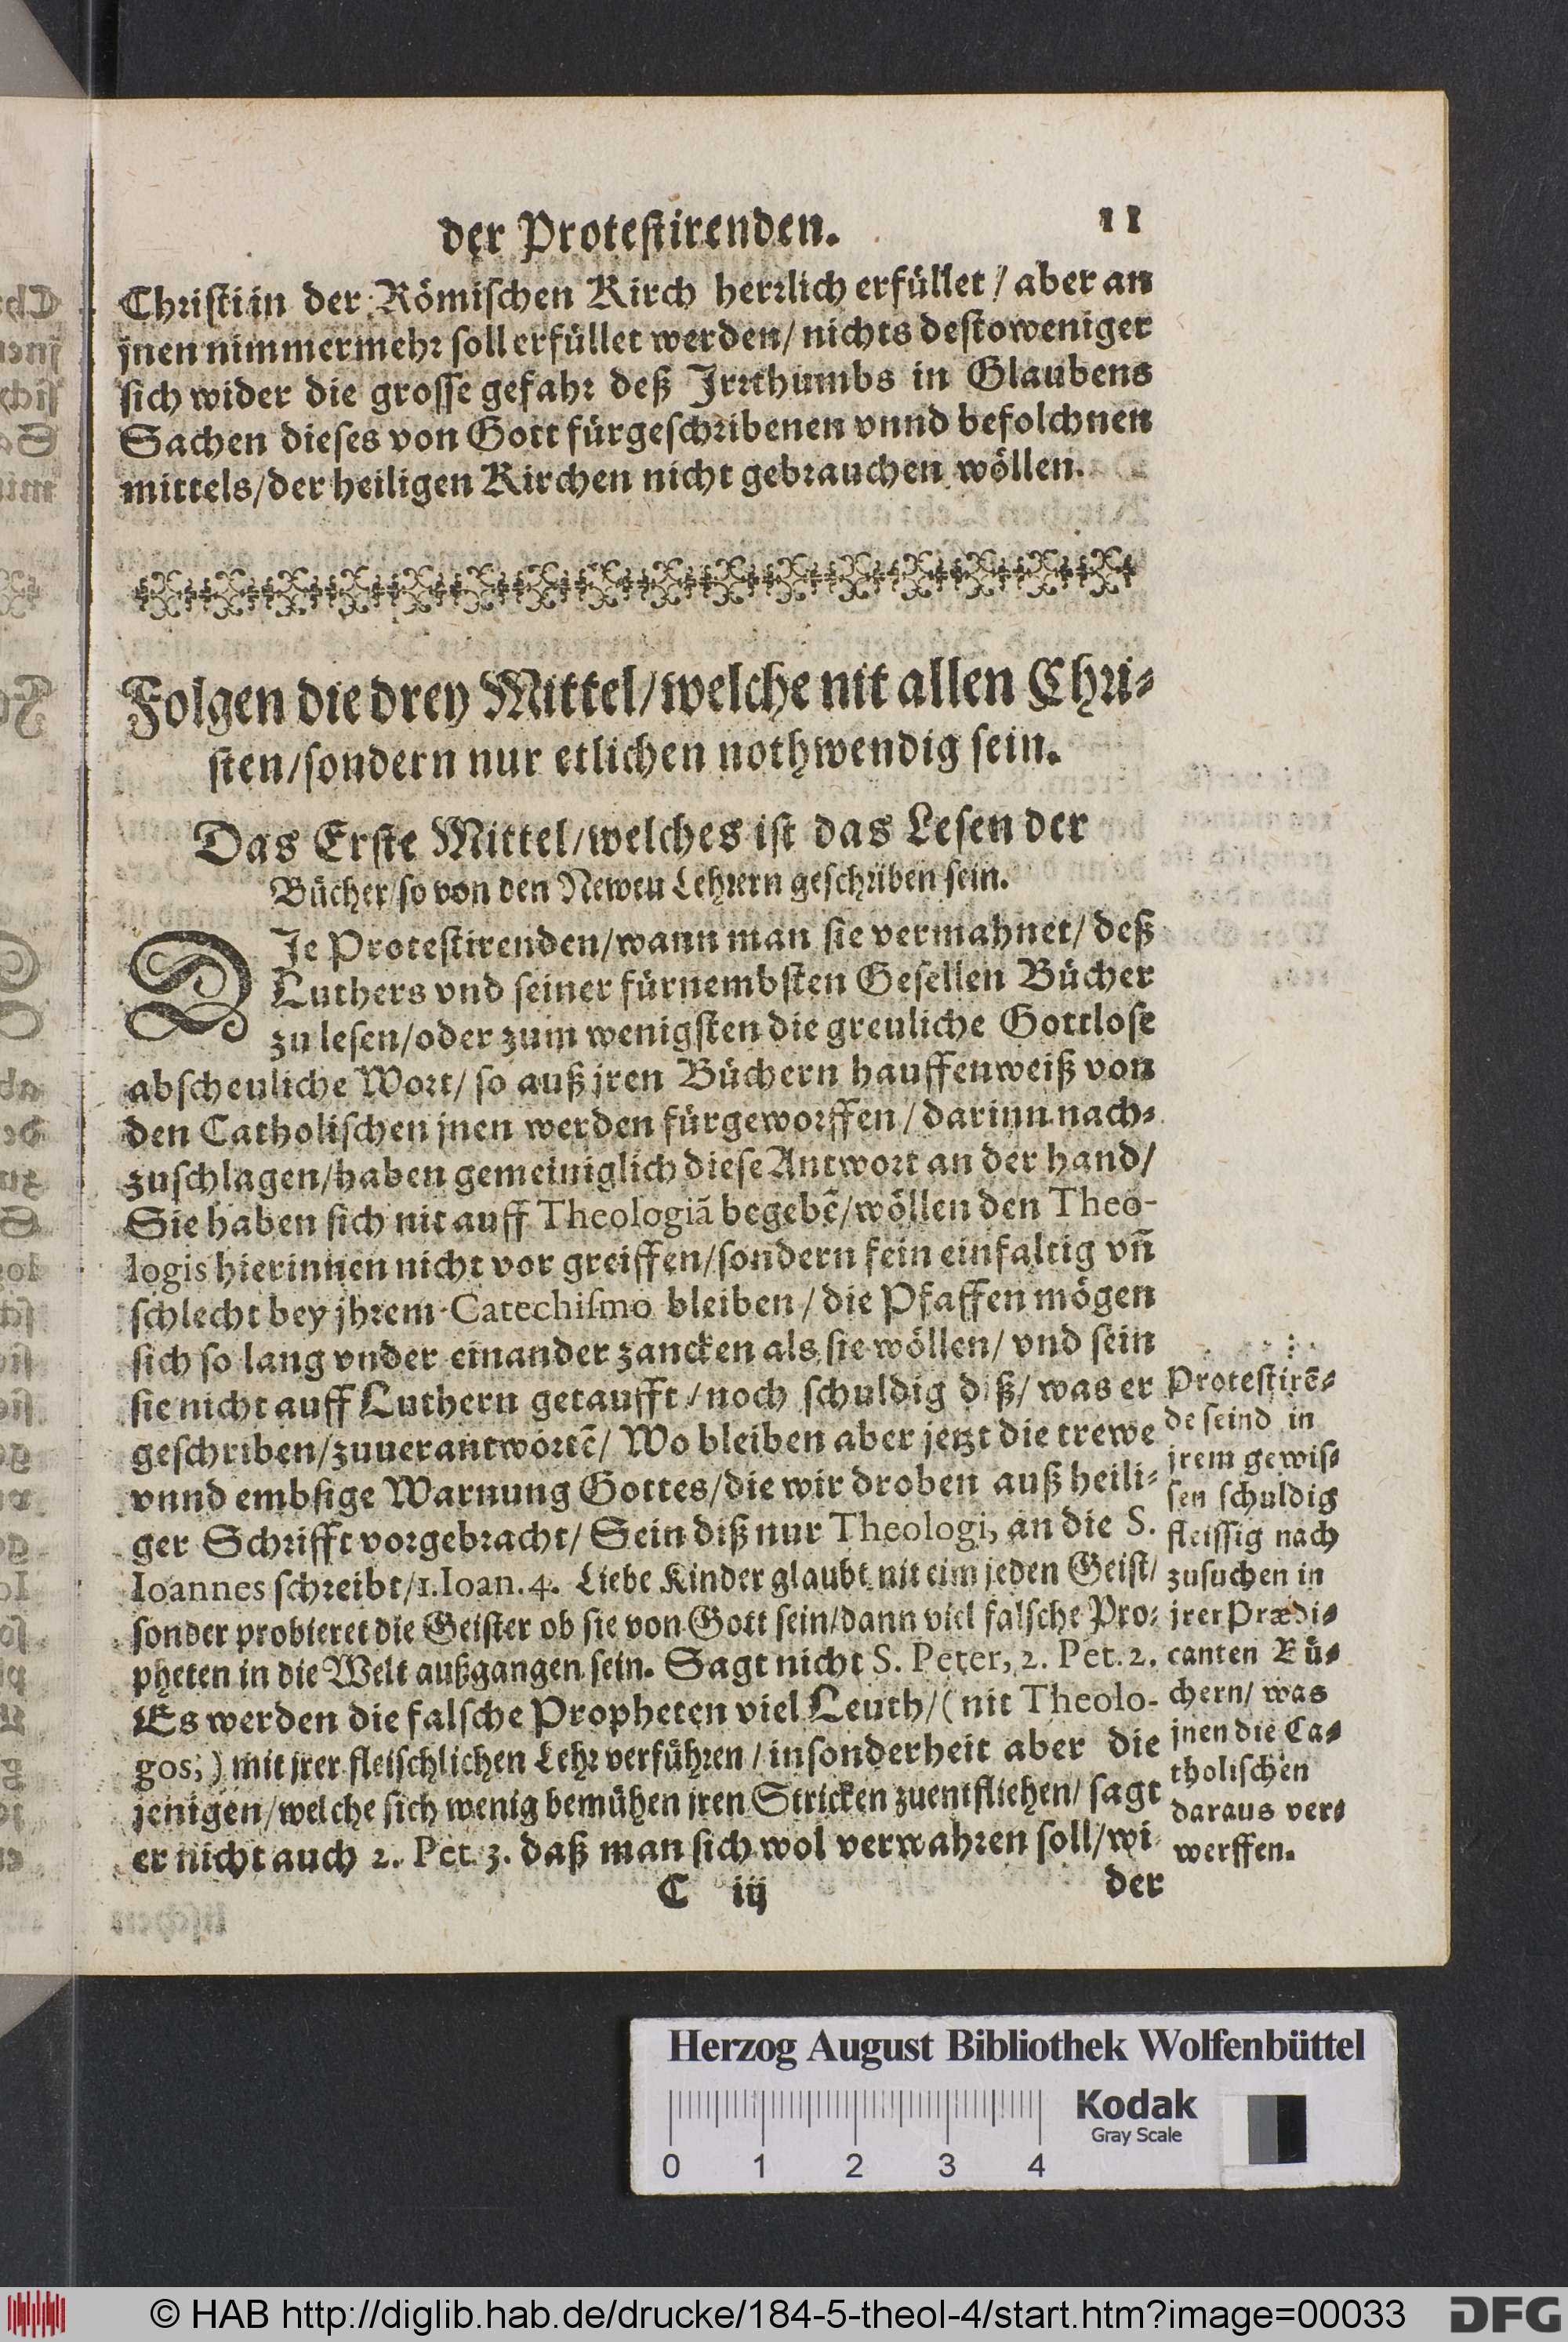 der Protestirenden. 11
Christi in der Römischen Kirch herrlich erfüllet / aber an
jnen nimmermehr soll erfüllet werden / nichts destoweniger
sich wider die grosse gefahr deß Irrthumbs in Glaubens
Sachen dieses von Gott fürgeschribenen vnnd befolchnen
mittels / der heiligen Kirchen nicht gebrauchen wöllen.
Folgen die drey Mittel / welche nit allen Chri-
sten / sondern nur etlichen nothwendig sein.
Das Erste Mittel / welches ist das Lesen der
Bücher / so von den Newen Lehrern geschriben sein.
DIe Protestirenden / wann man sie vermahnet / deß
Luthers vnd seiner fürnembsten Gesellen Bücher
zu lesen / oder zum wenigsten die greuliche Gottlose
abscheuliche Wort / so auß jren Büchern hauffenweiß von
den Catholischen jnen werden fürgeworffen / darinn nach-
zuschlagen / haben gemeiniglich diese Antwort an der hand /
Sie haben sich nit auff Theologiā begebē / wöllen den Theo-
logis hierinnen nicht vor greiffen / sondern fein einfaltig vñ
schlecht bey jhrem Catechismo bleiben / die Pfaffen mögen
sich so lang vnder einander zancken als sie wöllen / vnd sein
sie nicht auff Luthern getaufft / noch schuldig diß / was er
geschriben / zuuerantwortē / Wo bleiben aber jetzt die trewe
vnnd embsige Warnung Gottes / die wir droben auß heili-
ger Schrifft vorgebracht / Sein diß nur Theologi, an die S.
Ioannes schreibt / 1. Ioan. 4. Liebe Kinder glaubt nit eim jeden Geist /
sonder probieret die Geister ob sie von Gott sein / dann viel falsche Pro-
pheten in die Welt außgangen sein. Sagt nicht S. Peter, 2. Pet. 2.
Es werden die falsche Propheten viel Leuth / ( nit Theolo-
gos; ) mit jrer fleischlichen Lehr verführen / insonderheit aber die
jenigen / welche sich wenig bemühen jren Stricken zuentfliehen / sagt
er nicht auch 2. Pet. 3. daß man sich wol verwahren soll / wi-
C iij der
Protestirē-
de seind in
jrem gewis-
sen schuldig
fleissig nach
zusuchen in
jrer Prædi-
canten Bü-
chern / was
jnen die Ca-
tholischen
daraus ver-
werffen.
Herzog August Bibliothek Wolfenbüttel
Kodak
Gray Scale
0 1 2 3 4
© HAB http://diglib.hab.de/drucke/184-5-theol-4/start.htm?image=00033
DFG